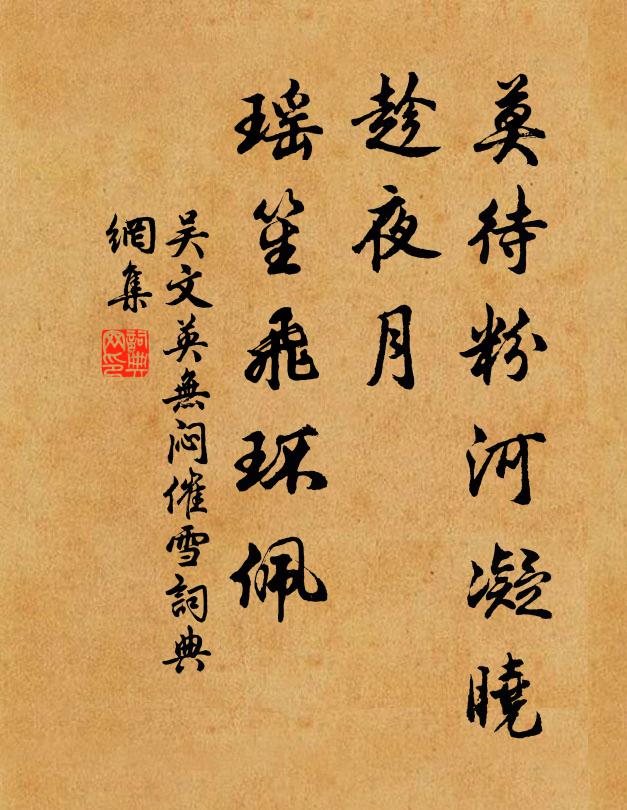 莫待粉河凝曉
趁夜月
瑶笙飛环佩
吴文英無闷催雪詞典
網集
詞典网印